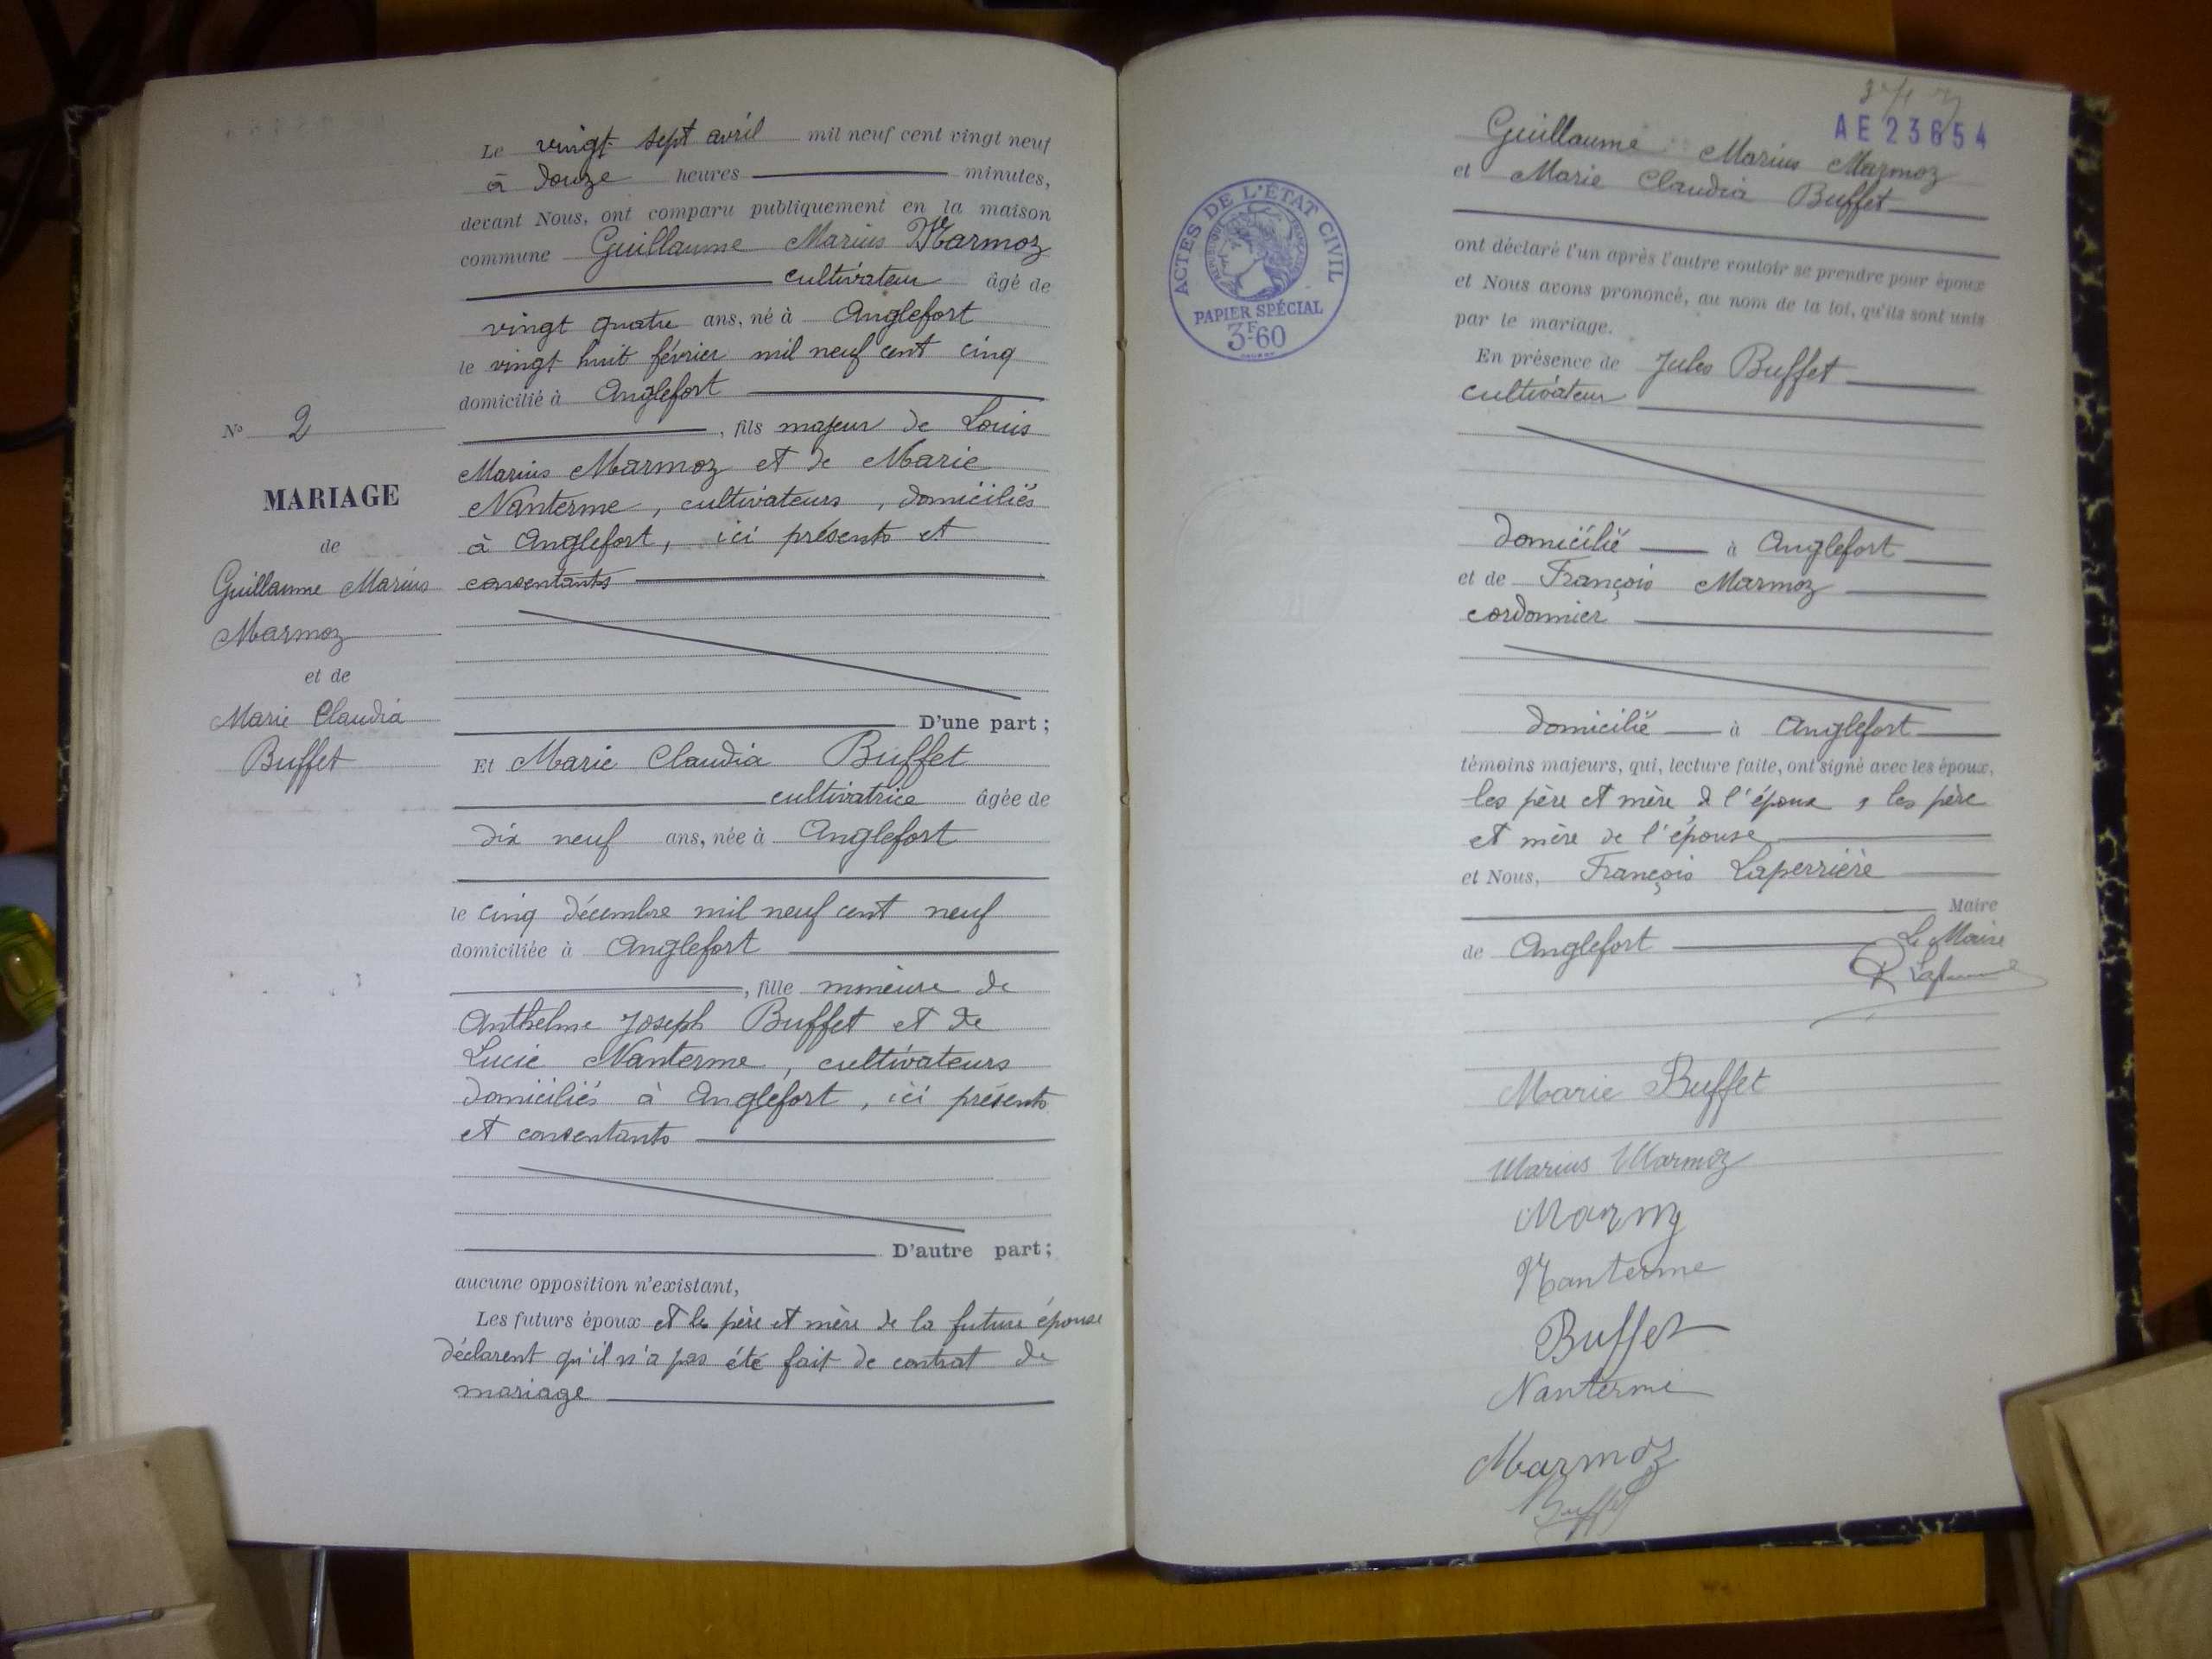 Le vingt sept avril mil neuf cent vingt neuf
à douze heures minutes,
devant Nous, ont comparu publiquement en la maison
commune Guillaume Marius Marmoz
cultivateur âgé de
vingt quatre ans, né à Anglefort
le vingt huit février mil neuf cent cinq
domicilié à Anglefort
, fils majeur de Louis
Marius Marmoz et de Marie
Nanterme, cultivateurs, domiciliés
à Anglefort, ici présents et
consentants
D'une part ;
Et Marie Claudia Buffet
cultivatrice âgée de
dix neuf ans, née à Anglefort
le cinq décembre mil neuf cent neuf
domiciliée à Anglefort
, fille mineure de
Anthelme Joseph Buffet et de
Lucie Nanterme, cultivateurs
domiciliés à Anglefort, ici présents
et consentants
D'autre part ;
aucune opposition n'existant,
Les futurs époux et les père et mère de la future épouse
déclarent qu'il n'a pas été fait de contrat de
mariage
N° 2
MARIAGE
de
Guillaume Marius
Marmoz
et de
Marie Claudia
Buffet
AE 23654
Guillaume Marius Marmoz
et Marie Claudia Buffet
ACTES DE L'ÉTAT CIVIL
RÉPUBLIQUE FRANÇAISE
PAPIER SPÉCIAL
3F60
ont déclaré l'un après l'autre vouloir se prendre pour époux
et Nous avons prononcé, au nom de la loi, qu'ils sont unis
par le mariage.
En présence de Jules Buffet
cultivateur
domicilié à Anglefort
et de François Marmoz
cordonnier
domicilié à Anglefort
témoins majeurs, qui, lecture faite, ont signé avec les époux,
les père et mère de l'époux, les père
et mère de l'épouse
et Nous, François Laperrière
Maire
de Anglefort Le Maire
Marie Buffet
Marius Marmoz
Marmoz
Nanterme
Buffet
Nanterme
Marmoz
Buffet